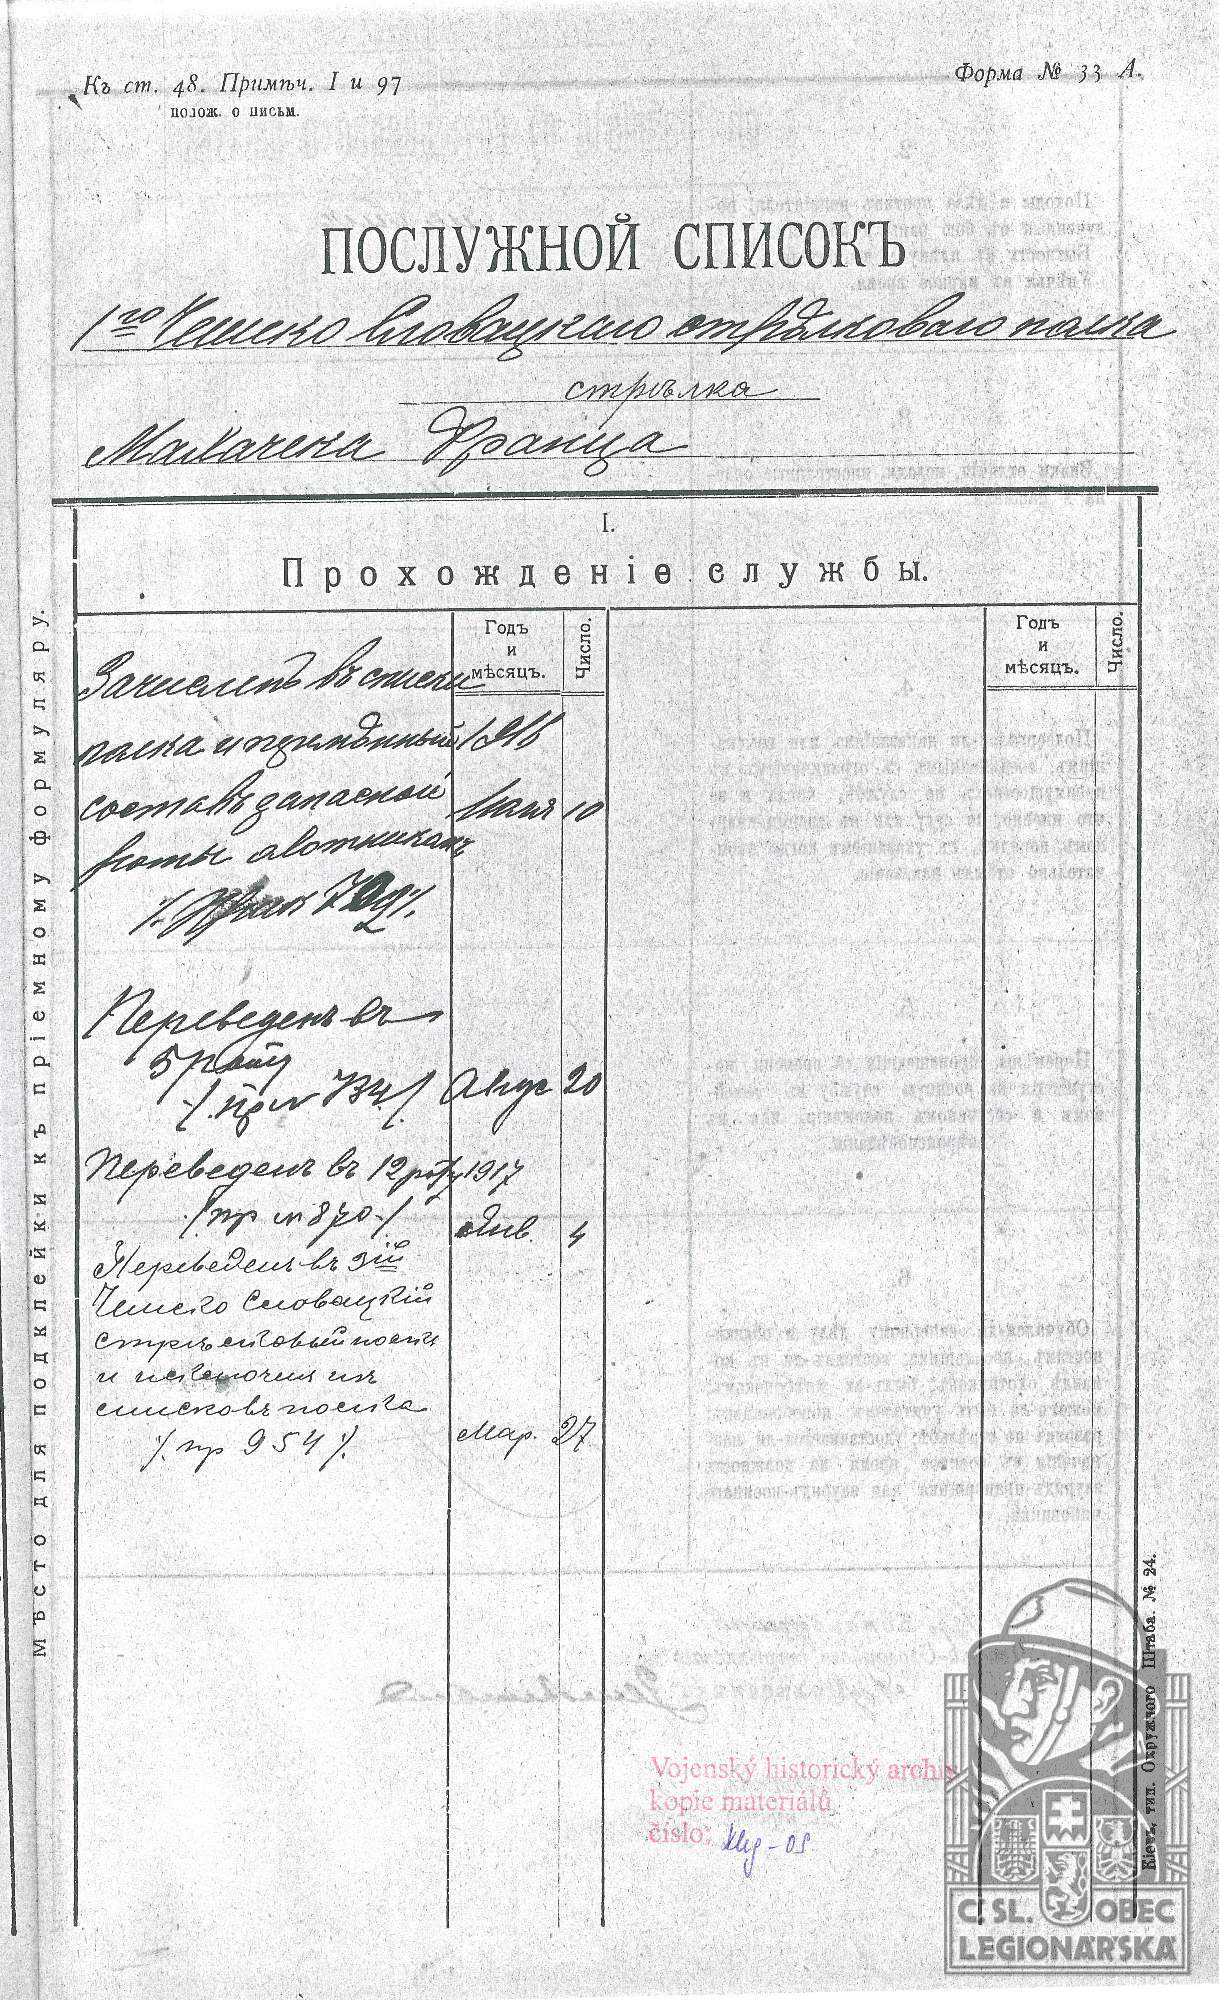 Къ ст. 48. Примѣч. I и 97
полож. о письм.
Форма № 33 А.
ПОСЛУЖНОЙ СПИСОКЪ
1го Чешско Словацкаго стрѣлковаго полка
стрѣлка
Малачека Франца
I.
Прохожденіе службы.
Годъ и мѣсяцъ.
Число.
Годъ и мѣсяцъ.
Число.
Зачисленъ въ списки
полка и перемѣнный 1916
составъ запасной 10
роты охотникомъ
Переведенъ въ
5 роту
/. пр № 734 / Авгус 20
Переведенъ въ 12 роту 1917
/ пр № 870 / Янв. 4
Переведенъ въ 3ій
Чешско Словацкій
стрѣлковый полкъ
и исключенъ изъ
списковъ полка
/. пр 954 /. Мар. 27
Мѣсто для подклейки къ пріемному формуляру.
Кіевъ, тип. Окружного Штаба. № 24.
Vojenský historický archiv
kopie materiálů
číslo:
ČSL. OBEC
LEGIONÁŘSKÁ